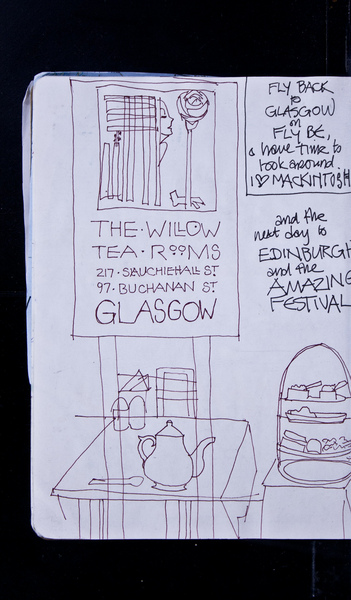 THE·WILLOW
TEA·ROOMS
217·SAUCHIEHALL ST
97·BUCHANAN ST
GLASGOW
FLY BACK
to
GLASGOW
on
FLY BE,
& have time to
look around.
I ♡ MACKINTOSH
and the
next day to
EDINBURGH
and the
AMAZING
FESTIVAL